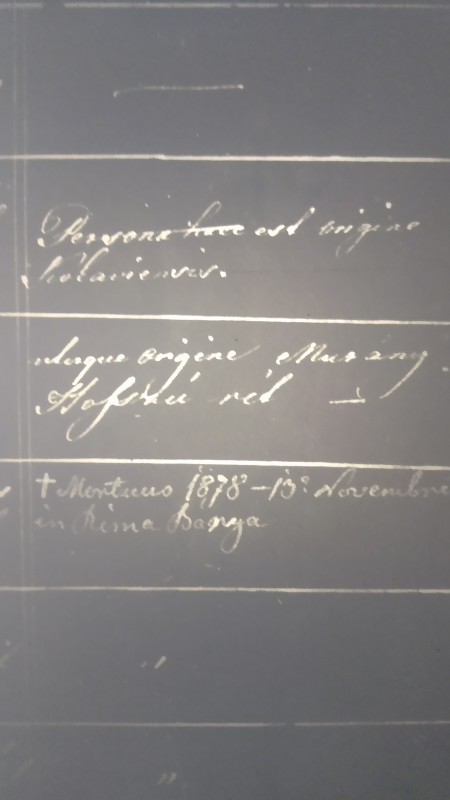 Persona haec est origine
Kolaviensis.
utraque origine Murány
Hosszú rét
† Mortuus 1878 – 13a Novembre
in Rima Banya
"
"